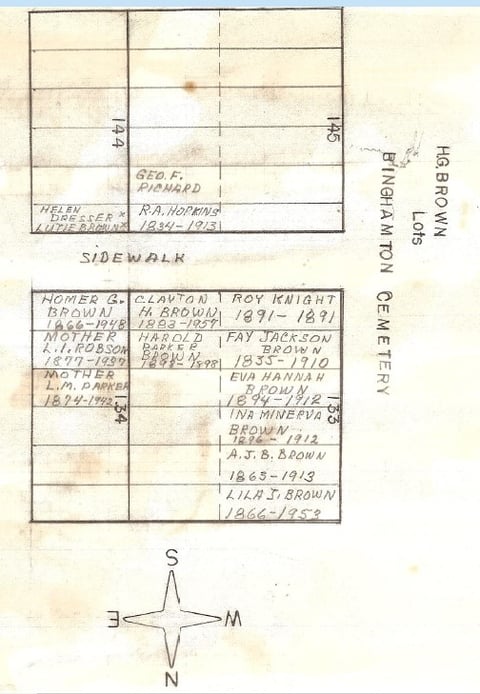 144
145
GEO. F.
RICHARD
HELEN
DRESSER x
LUTIE BROWN x
R.A. HOPKINS
1834-1913
SIDEWALK
HOMER G.
BROWN
1866-1948
CLAYTON
H. BROWN
1883-1957
ROY KNIGHT
1891-1891
MOTHER
L.I. ROBSON
HAROLD
PARKER
BROWN
1898-1898
FAY JACKSON
BROWN
1835-1910
MOTHER
L.M. PARKER
1874-1942
134
EVA HANNAH
BROWN
1894-1912
133
INA MINERVA
BROWN
1896-1912
A.J.B. BROWN
1863-1913
LILA J. BROWN
1866-1953
H.G. BROWN
Lots
BINGHAMTON CEMETERY
S
E
W
N